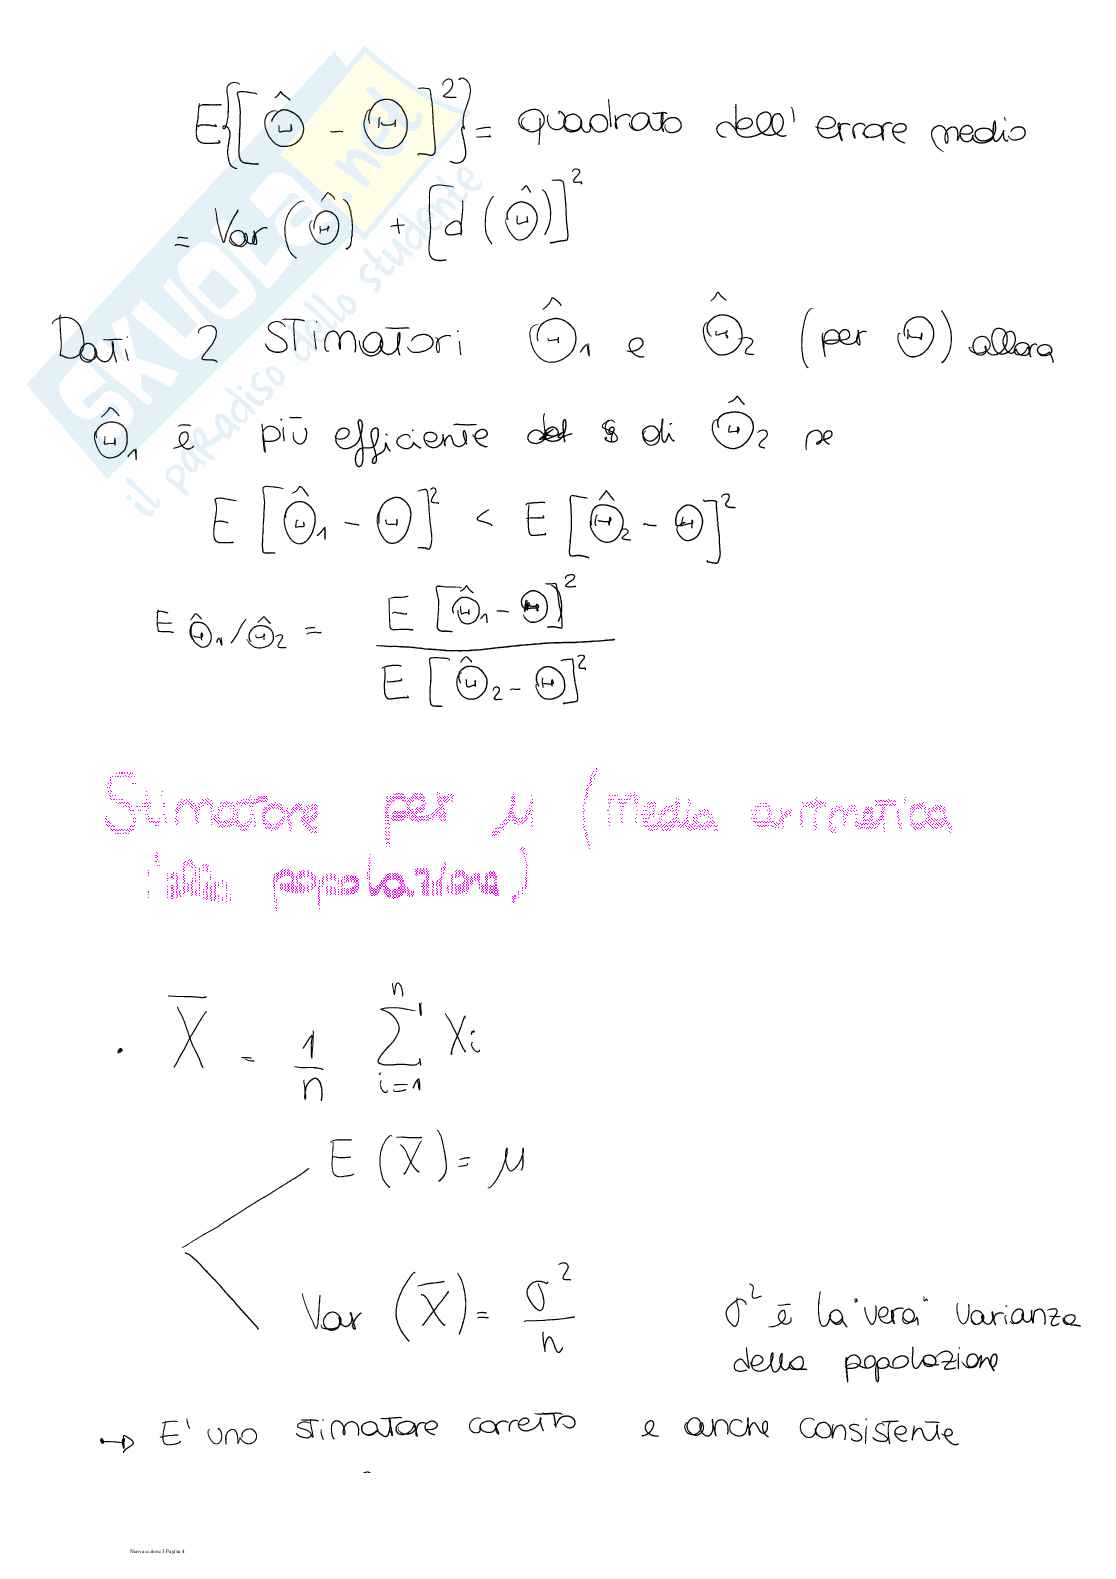 E{[Θ̂ - Θ]²} = quadrato dell'errore medio
= Var (Θ̂) + [d (Θ̂)]²
Dati 2 stimatori Θ̂1 e Θ̂2 (per Θ) allora
Θ̂1 è più efficiente di Θ̂2 se
E [Θ̂1 - Θ]² < E [Θ̂2 - Θ]²
E Θ̂1/Θ̂2 = E [Θ̂1 - Θ]² / E [Θ̂2 - Θ]²
Stimatore per μ (media aritmetica
popolazione)
. X̅ = 1/n ∑ i=1 n Xi
E (X̅) = μ
Var (X̅) = σ²/n
σ² è la "vera" varianza
della popolazione
→ E' uno stimatore corretto e anche consistente
SKUOLA.net
il paradiso dello studente